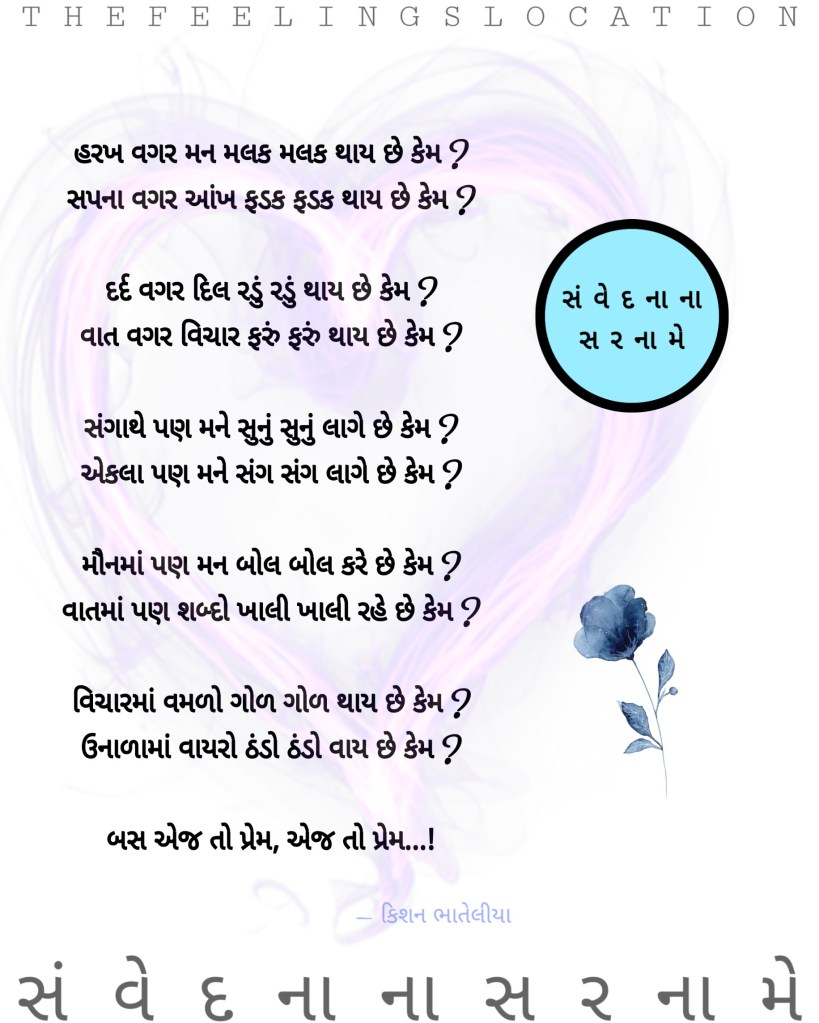 THEFEELINGSLOCATION
હરખ વગર મન મલક મલક થાય છે કેમ ?
સપના વગર આંખ ફડક ફડક થાય છે કેમ ?
દર્દ વગર દિલ રડું રડું થાય છે કેમ ?
વાત વગર વિચાર ફરું ફરું થાય છે કેમ ?
સંવેદનાના
સરનામે
સંગાથે પણ મને સુનું સુનું લાગે છે કેમ ?
એકલા પણ મને સંગ સંગ લાગે છે કેમ ?
મૌનમાં પણ મન બોલ બોલ કરે છે કેમ ?
વાતમાં પણ શબ્દો ખાલી ખાલી રહે છે કેમ ?
વિચારમાં વમળો ગોળ ગોળ થાય છે કેમ ?
ઉનાળામાં વાયરો ઠંડો ઠંડો વાય છે કેમ ?
બસ એજ તો પ્રેમ, એજ તો પ્રેમ...!
– કિશન ભાતેલીયા
સંવેદનાના સરનામે